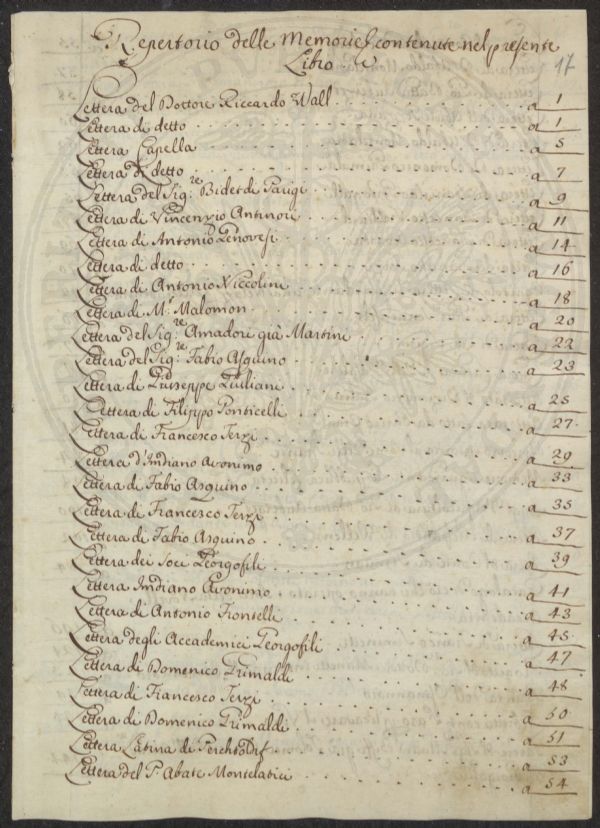 Repertorio delle Memorie contenute nel presente
Libro
17
Lettera del Dottore Riccardo Wall a 1
Lettera di detto a 1
Lettera Capella a 5
Lettera di detto a 7
Lettera del Sig.re Bidet di Parigi a 9
Lettera di Vincenzio Antinori a 11
Lettera di Antonio Genovesi a 14
Lettera di detto a 16
Lettera di Antonio Niccolini a 18
Lettera di M.r Malomon a 20
Lettera del Sig.re Amadori già Martini a 22
Lettera del Sig.re Fabio Asquino a 23
Lettera di Giuseppe Giuliani a 25
Lettera di Filippo Ponticelli a 27
Lettera di Francesco Terzi a 29
Lettera d'Indiano Avonimo a 33
Lettera di Fabio Asquino a 35
Lettera di Francesco Terzi a 37
Lettera di Fabio Asquino a 39
Lettera dei Soci Georgofili a 41
Lettera Indiano Avonimo a 43
Lettera di Antonio Fiontelli a 45
Lettera degli Accademici Georgofili a 47
Lettera di Domenico Grimaldi a 48
Lettera di Francesco Terzi a 50
Lettera di Domenico Grimaldi a 51
Lettera Latina di Perchtoldt a 53
Lettera del P. Abate Montelatici a 54